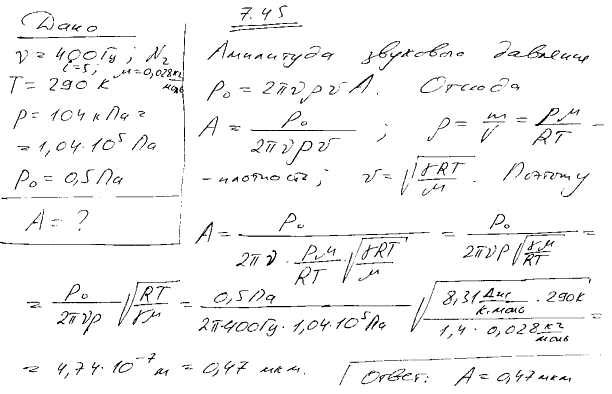 7.45
Дано
ν = 400 Гц ; N₂
i = 5; μ = 0,028 кг/моль
T = 290 К
p = 104 кПа =
= 1,04·10⁵ Па
P₀ = 0,5 Па
A = ?
Амплитуда звукового давления
P₀ = 2πνρv A. Отсюда
A = P₀ / 2πνρv ; ρ = m/V = pμ/RT –
– плотность; v = √(γRT/μ). Поэтому
A = P₀ / (2πν · pμ/RT √(γRT/μ)) = P₀ / (2πνp √(γμ/RT)) =
= P₀/2πνp √(RT/γμ) = 0,5 Па / (2π·400 Гц · 1,04·10⁵ Па) √(8,31 Дж/К·моль · 290 К / 1,4 · 0,028 кг/моль) =
= 4,74 · 10⁻⁷ м = 0,47 мкм. Ответ: A = 0,47 мкм